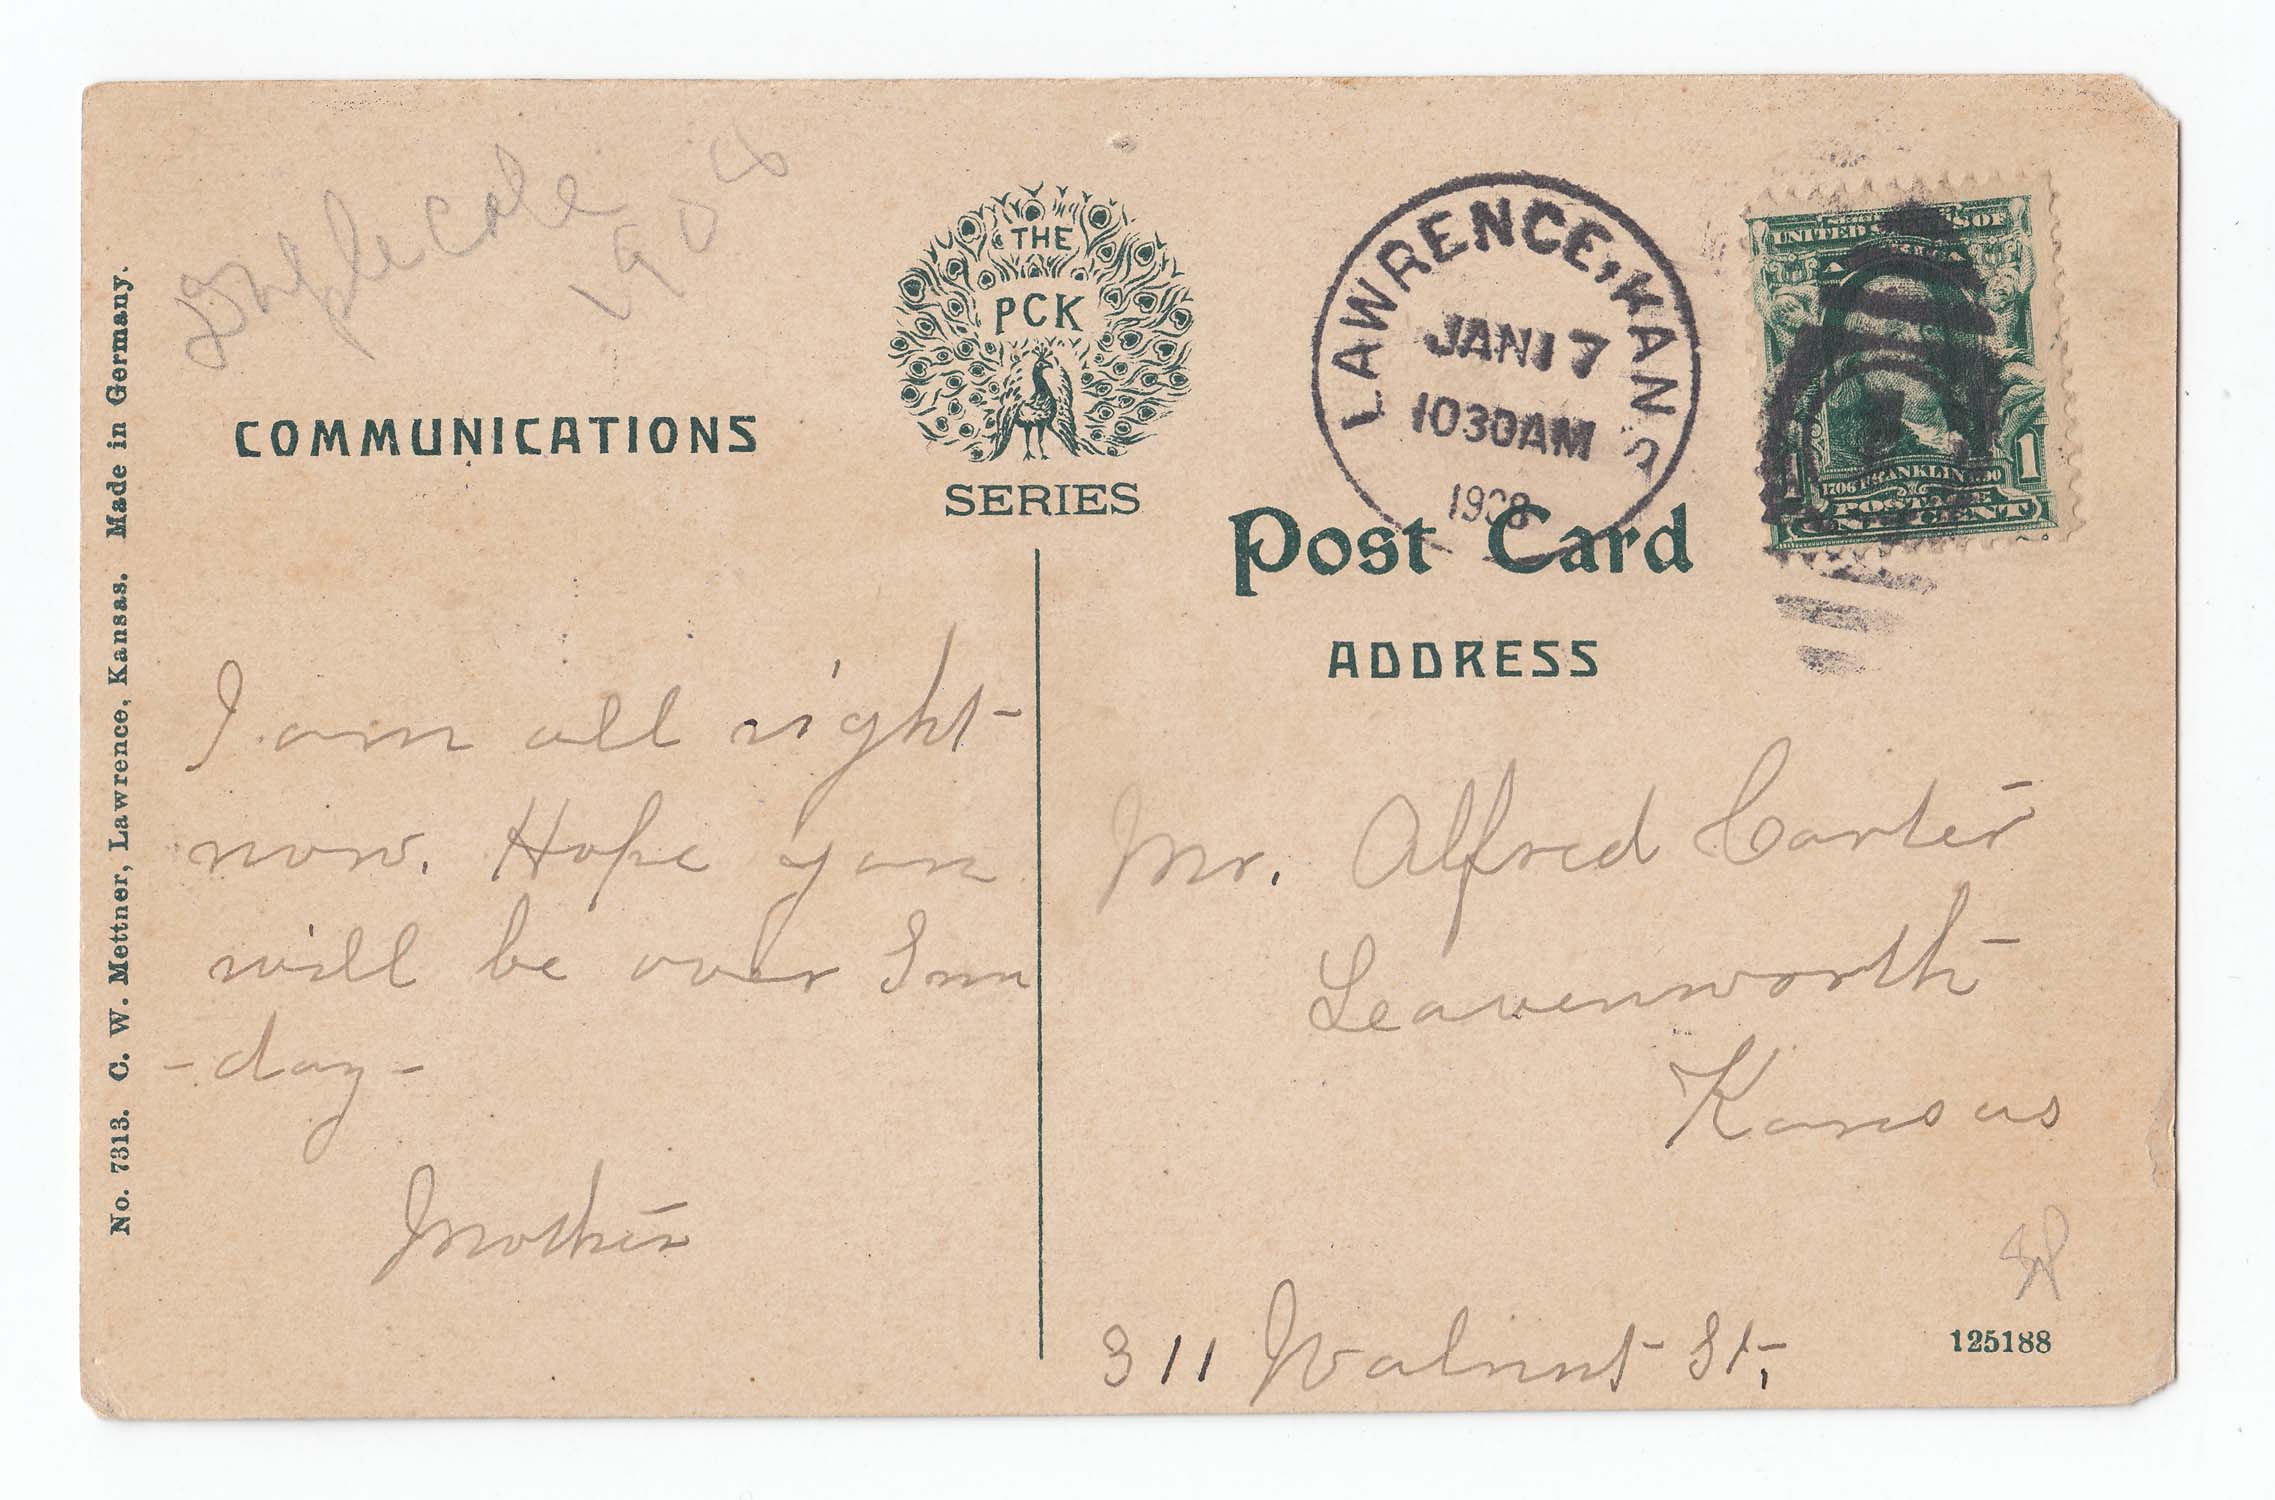 1908
THE
PCK
SERIES
COMMUNICATIONS
LAWRENCE, KANS
JAN 17
1030AM
1908
UNITED STATES OF
AMERICA
1706 FRANKLIN 1790
POSTAGE
ONE CENT
1
Post Card
ADDRESS
No. 7313. C. W. Mettner, Lawrence, Kansas. Made in Germany.
I am all right
now. Hope you
will be over Sun
-day-
Mother
Mr. Alfred Carter
Leavenworth
Kansas
311 Walnut St,
125188